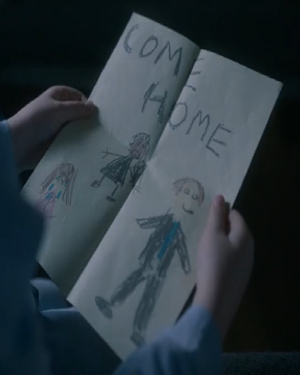 COME
HOME